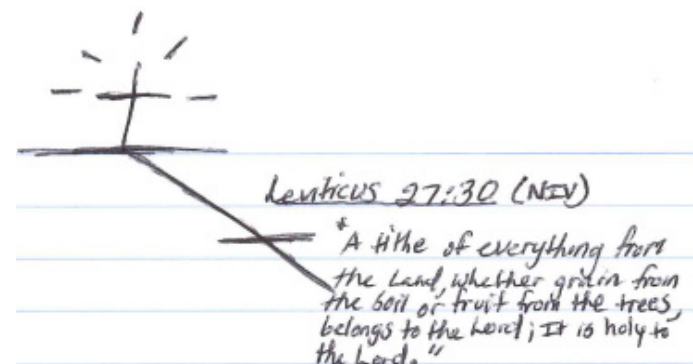 Leviticus 27:30 (NIV)
"A tithe of everything from
the Land, whether grain from
the soil or fruit from the trees,
belongs to the Lord; It is holy to
the Lord."